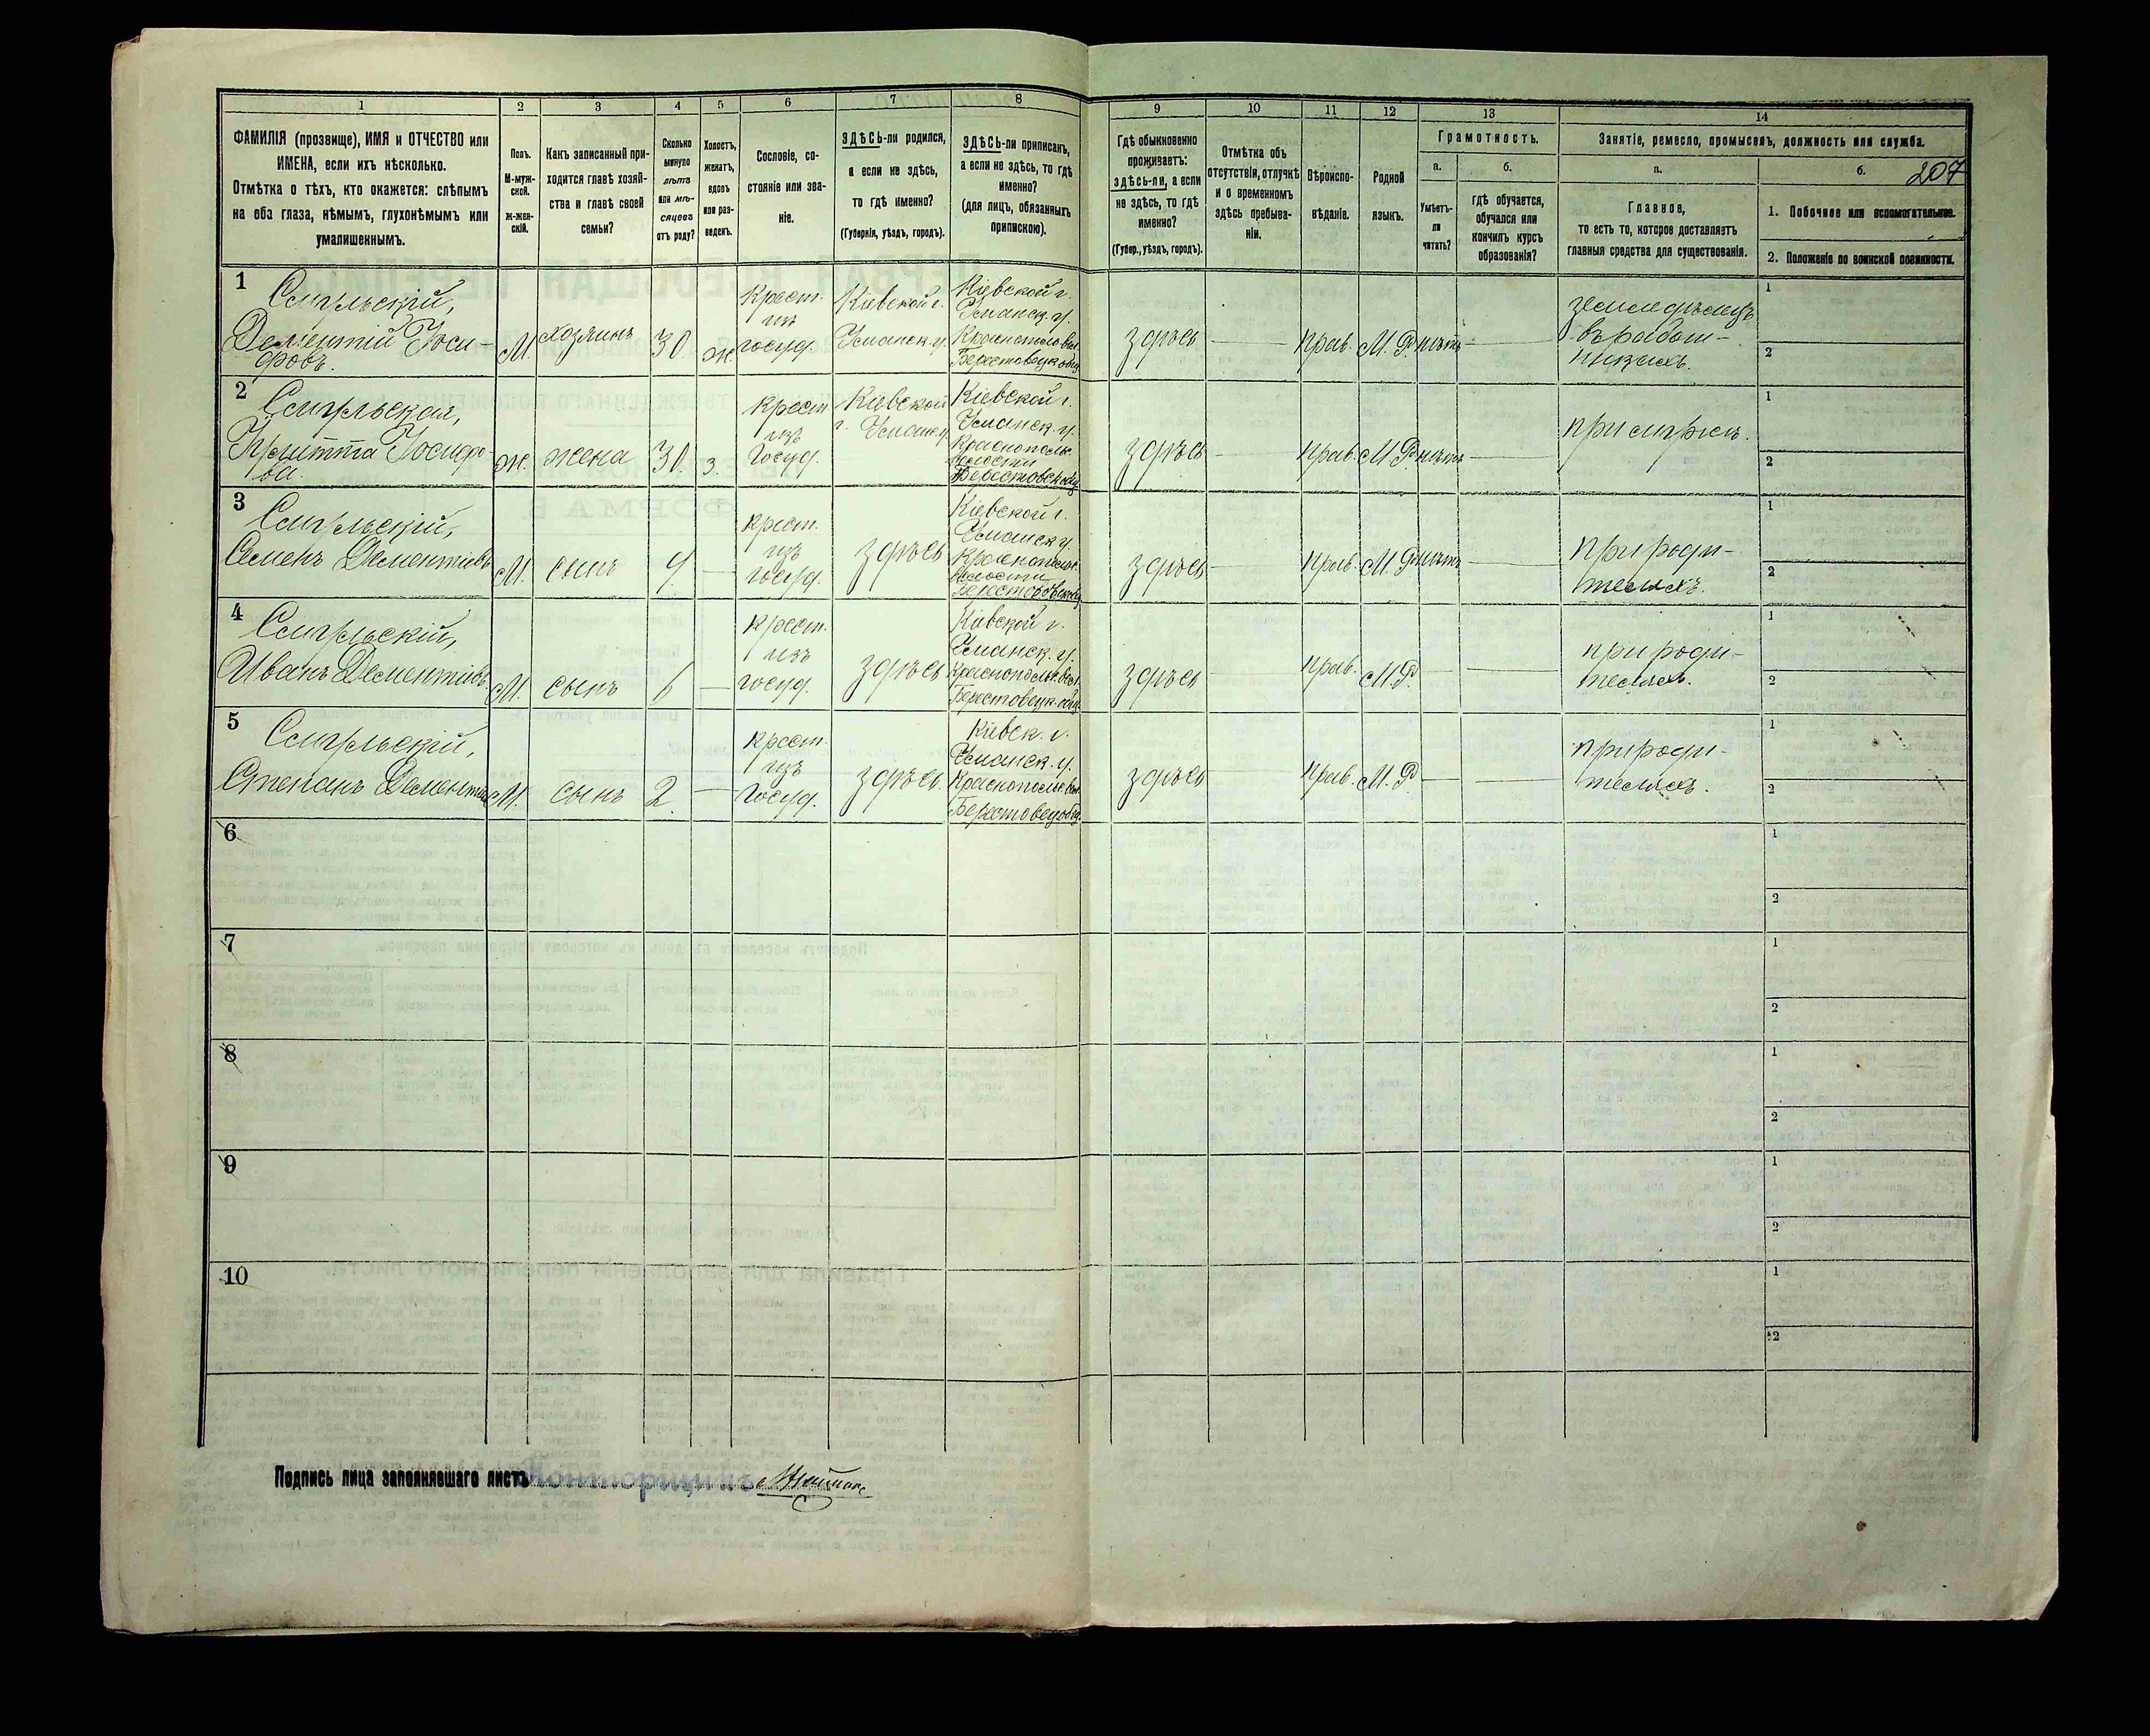 1 2 3 4 5 6 7 8 9 10 11 12 13 14
ФАМИЛІЯ (прозвище), ИМЯ и ОТЧЕСТВО или
ИМЕНА, если ихъ нѣсколько.
Отмѣтка о тѣхъ, кто окажется: слѣпымъ
на оба глаза, нѣмымъ, глухонѣмымъ или
умалишеннымъ.
Полъ.
М-муж-
ской.
ж-жен-
скій.
Какъ записанный при-
ходится главѣ хозяй-
ства и главѣ своей
семьи?
Сколько
минуло
лѣтъ
или мѣ-
сяцевъ
отъ роду?
Холостъ,
женатъ,
вдовъ
или раз-
веденъ.
Сословіе, со-
стояніе или зва-
ніе.
ЗДѢСЬ-ли родился,
а если не здѣсь,
то гдѣ именно?
(Губернія, уѣздъ, городъ).
ЗДѢСЬ-ли приписанъ,
а если не здѣсь, то гдѣ
именно?
(для лицъ, обязанныхъ
припискою).
Гдѣ обыкновенно
проживаетъ:
здѣсь-ли, а если
не здѣсь, то гдѣ
именно?
(Губер., уѣздъ, городъ).
Отмѣтка объ
отсутствіи, отлучкѣ
и о временномъ
здѣсь пребыва-
ніи.
Вѣроиспо-
вѣданіе.
Родной
языкъ.
Грамотность.
а.
Умѣетъ-
ли
читать?
б.
гдѣ обучается,
обучался или
кончилъ курсъ
образованія?
Занятіе, ремесло, промыселъ, должность или служба.
а.
Главное,
то есть то, которое доставляетъ
главныя средства для существованія.
б. 207
1. Побочное или вспомогательное.
2. Положеніе по воинской повинности.
1
Дементій Іоси-
фовъ.
М.
хозяинъ
30
ж.
Крест.
изъ
госуд.
Кіевской г.
Уманск. у.
Кіевской г.
Уманск. у.
здѣсь
прав.
М. Р.
нѣтъ
земледѣлецъ
въ работ-
никахъ.
1
2
2
Іосифо
ва.
ж.
жена
30.
з.
Крест
изъ
Госуд.
Кіевской
г. Уманск. у.
Кіевской г.
Уманск. у.
волости
здѣсь
прав.
М. Р.
нѣтъ
при мужѣ.
1
2
3
Семенъ Дементіевъ
М.
сынъ
крест.
изъ
госуд.
здѣсь
Кіевской г.
Уманск у.
волости
здѣсь
прав.
М. Р.
нѣтъ
при роди-
теляхъ.
1
2
4
Иванъ Дементіевъ.
М.
сынъ
крест.
изъ
госуд.
здѣсь
Кіевской г.
Уманск. у.
здѣсь
прав.
М. Р.
при роди-
теляхъ.
1
2
5
Степанъ
М.
сынъ
2.
крест.
изъ
Госуд.
здѣсь.
Кіевск. г.
Уманск. у.
здѣсь
прав.
М. Р.
при роди-
теляхъ.
1
2
6
1
2
7
1
2
8
1
2
9
1
2
10
1
2
Подпись лица заполнявшаго листъ